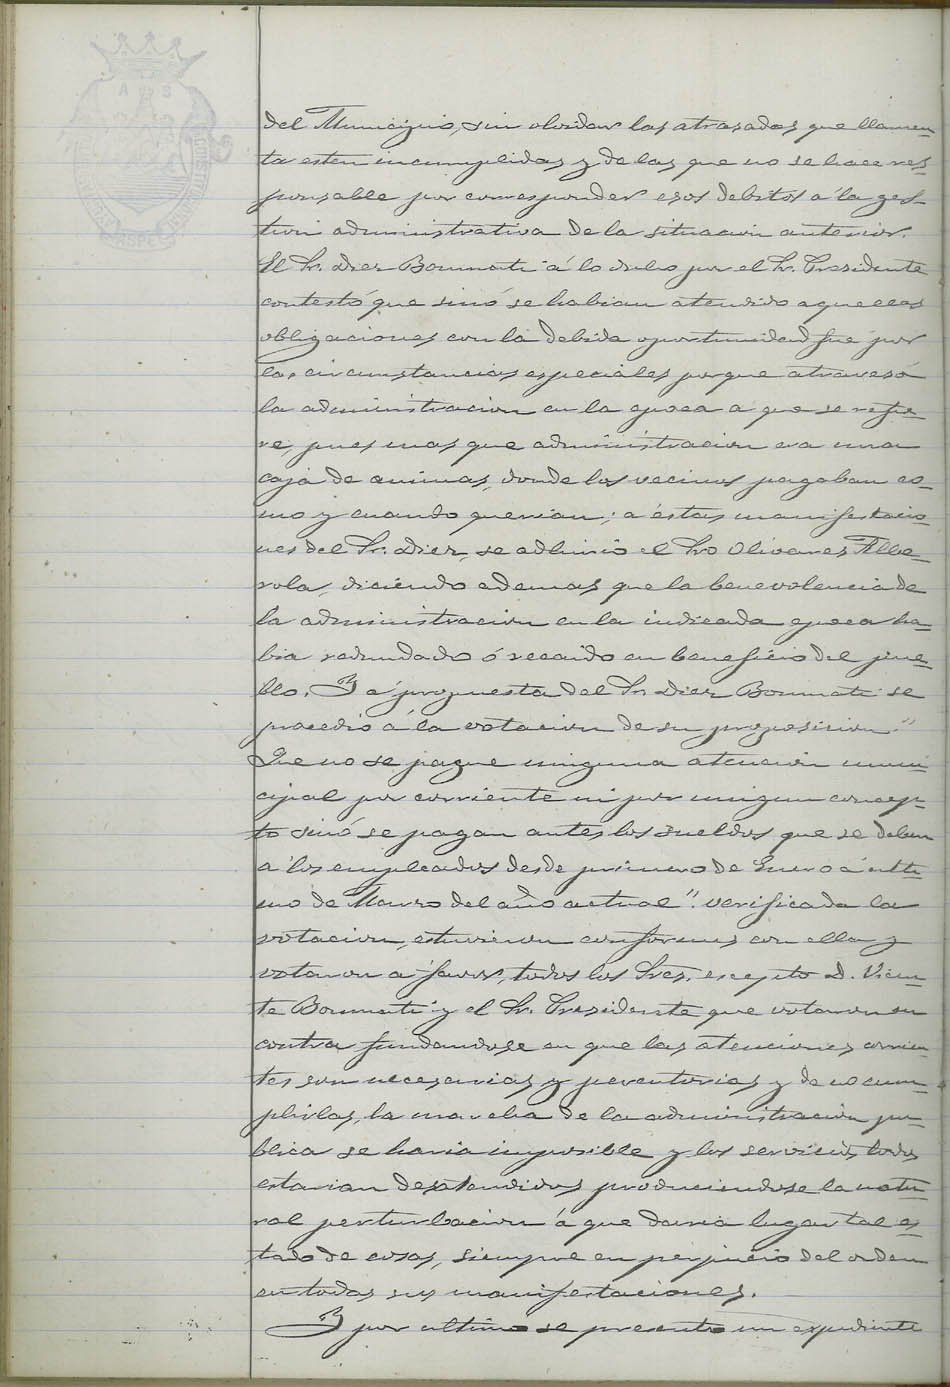 A S
del Municipio, sin olvidar las atrasadas que llamen-
ta esten incumplidas y de las que no se hace res-
ponsable por corresponder esos debitos a la ges-
tion administrativa de la situacion anterior.
El Sr. Diez Bonmati á lo dicho por el Sr. Presidente
contestó que sinó se habian atendido aquellas
obligaciones con la debida oportunidad fué por
las circunstancias especiales porque atravesó
la administracion en la epoca a que se refie-
re, pues mas que administracion era una
caja de animas, donde los vecinos pagaban co-
mo y cuando querian; a éstas manifestacio-
nes del Sr. Diez, se adhirió el Sr Olivares Albe-
rola, diciendo ademas que la benevolencia de
la administracion en la indicada epoca ha-
bia redundado ó recaido en beneficio del pue-
blo. Y á propuesta del Sr Diez Bonmati se
procedió á la votacion de su proposicion "
Que no se pague ninguna atencion muni-
cipal por corriente ni por ningun concep-
to sinó se pagan antes los sueldos que se deben
a los empleados desde primero de Enero á ulti-
mo de Marzo del año actual". Verificada la
votacion, estuvieron conformes con ella y
votaron a favor, todos los Sres. escepto D. Vicen-
te Bonmati y el Sr. Presidente que votaron en
contra fundandose en que las atenciones corrien-
tes son necesarias y perentorias y de no cum-
plirlas, la marcha de la administracion pu-
blica se haria imposible y los servicios todos
estarian desatendidos produciendose la natu-
ral perturbacion á que daria lugar tal es-
tado de cosas, siempre en perjuicio del orden
en todas sus manifestaciones.
Y por ultimo se presentó un expediente